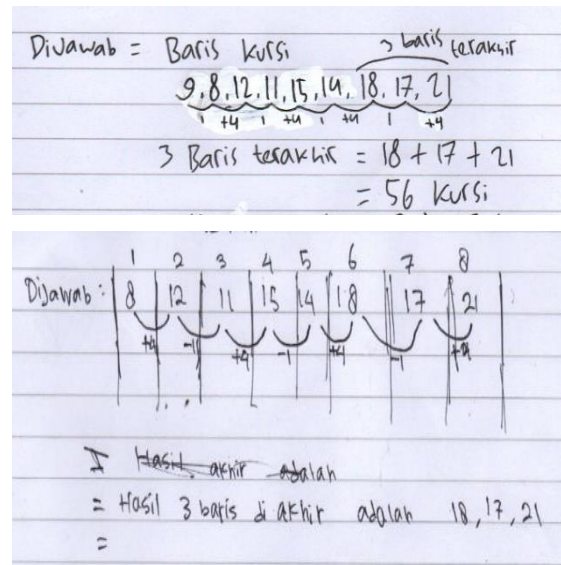 DiJawab = Baris kursi 3 baris terakhir
9, 8, 12, 11, 15, 14, 18, 17, 21
1 +4 1 +4 1 +4 1 +4
3 Baris terakhir = 18 + 17 + 21
= 56 kursi
1 2 3 4 5 6 7 8
DiJawab : 8 12 11 15 14 18 17 21
+4 -1 +4 -1 +4 -1 +4
Hasil akhir adalah
= Hasil 3 baris di akhir adalah 18, 17, 21
=